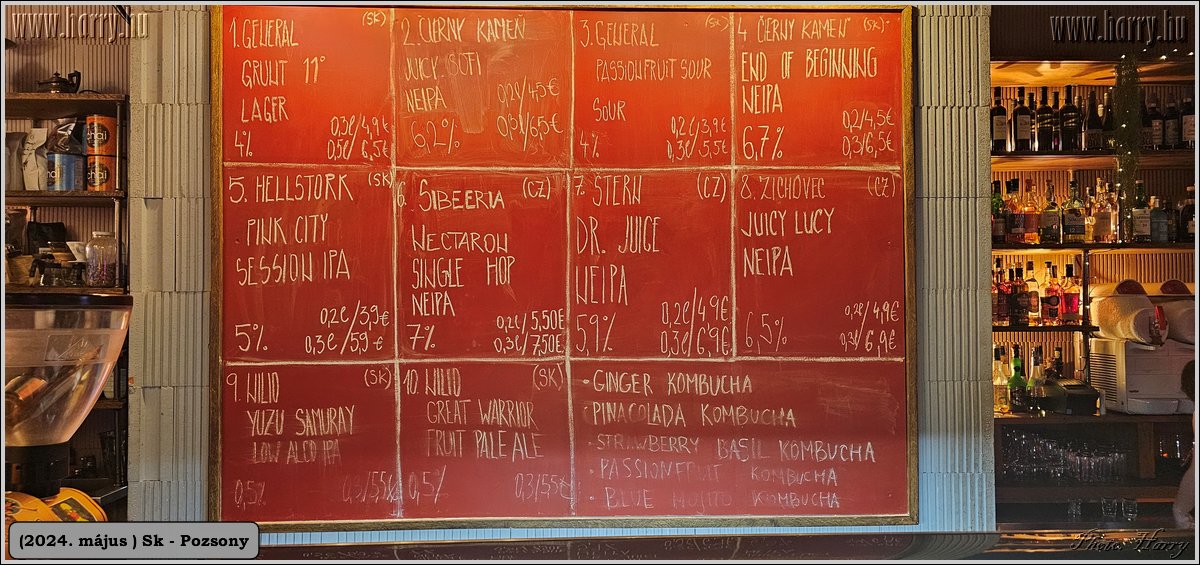 www.horry.hu
www.horry.hu
1. GENERAL (SK)
GRUNT 11°
LAGER
4% 0,3ℓ/4,9€
0,5ℓ/6,5€
2. ČIERNY KAMEŇ
JUICY SOFI
NEIPA 0,2ℓ/4,5€
6,2% 0,3ℓ/6,5€
3. GENERAL (SK)
PASSIONFRUIT SOUR
SOUR
4% 0,2ℓ/3,9€
0,3ℓ/5,5€
4. ČIERNY KAMEŇ (SK)
END OF BEGINNING
NEIPA
0,2/4,5€
6,7% 0,3/6,5€
5. HELLSTORK (SK)
PINK CITY
SESSION IPA
0,2ℓ/3,9€
5% 0,3ℓ/5,9€
6. SIBEERIA (CZ)
NECTARON
SINGLE HOP
NEIPA
7% 0,2ℓ/5,50€
0,3ℓ/7,50€
7. STERN (CZ)
DR. JUICE
NEIPA
0,2ℓ/4,9€
5,9% 0,3ℓ/6,9€
8. ZICHOVEC (CZ)
JUICY LUCY
NEIPA
0,2ℓ/4,9€
6,5% 0,3ℓ/6,9€
9. WILIO (SK)
YUZU SAMURAY
LOW ALCO IPA
0,5% 0,3/5,5€
10. WILIO (SK)
GREAT WARRIOR
FRUIT PALE ALE
0,5% 0,3/5,5€
• GINGER KOMBUCHA
• PINACOLADA KOMBUCHA
• STRAWBERRY BASIL KOMBUCHA
• PASSIONFRUIT KOMBUCHA
• BLUE MOJITO KOMBUCHA
chai
chai
(2024. május ) Sk - Pozsony
Photo: Horry